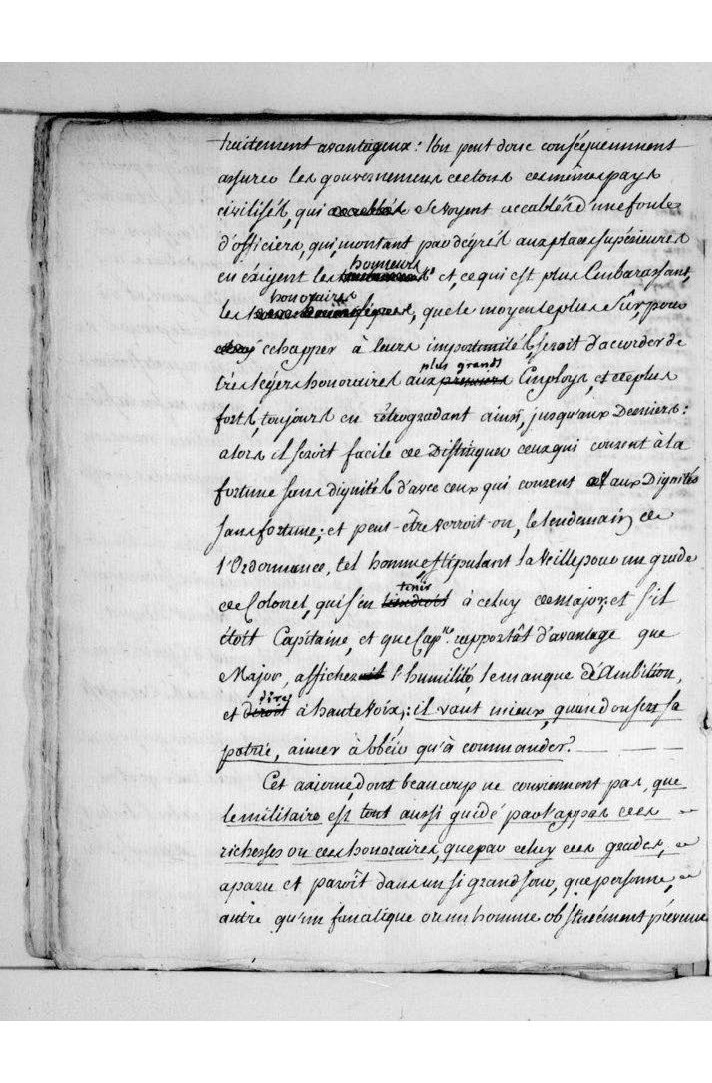 traitement avantageux: l'on peut donc conséquemment
assurer les gouvernemens de tous ces mêmes pays
civilisés, qui accablés se voyent accablés d'une foule
d'officiers, qui, montant par dégrés aux places supérieures
en éxigent les honneurs et, ce qui est plus Embarassant,
les honoraires, que le moyen le plus sûr, pour
échapper à leurs importunités, seroit d'accorder de
très légers honoraires aux premiers plus grands Emploÿs, et de plus
forts, toujours en rétrogradant ainsi, jusqu'aux Derniers:
alors il seroit facile de Distinguer ceux qui courent à la
fortune sans dignités d'avec ceux qui courent aux Dignités
sans fortune; et peut-être verroit-on, le lendemain de
l'Ordonnance, tel homme, stipulant la veille pour un grade
de Colonel, qui s'en tiendroit tenir à celuy de major, et s'il
étoit Capitaine, et que Cap.ne rapportât d'avantage que
Major, afficher l'humilité, le manque d'Ambition,
et diroit dire à haute voix: il vaut mieux, quand on sert sa
patrie, aimer à obéir qu'à commander.
Cet axiome, dont beaucoup ne conviennent pas, que
le militaire est tout aussi guidé par l'appas des
richesses ou des honoraires, que par celuy des grades,
a paru et paroît dans un si grand jour, que personne,
autre qu'un fanatique ou un homme obstinément prévenu